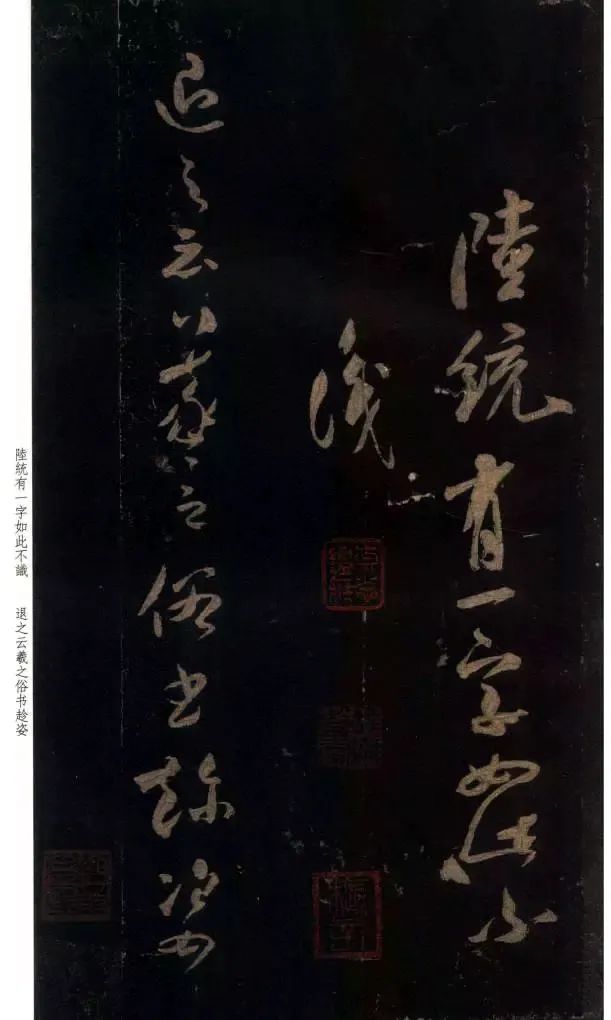 陸統有一字如此不
識
退之云羲之俗书趂姿
陸統有一字如此不識　退之云羲之俗书趁姿